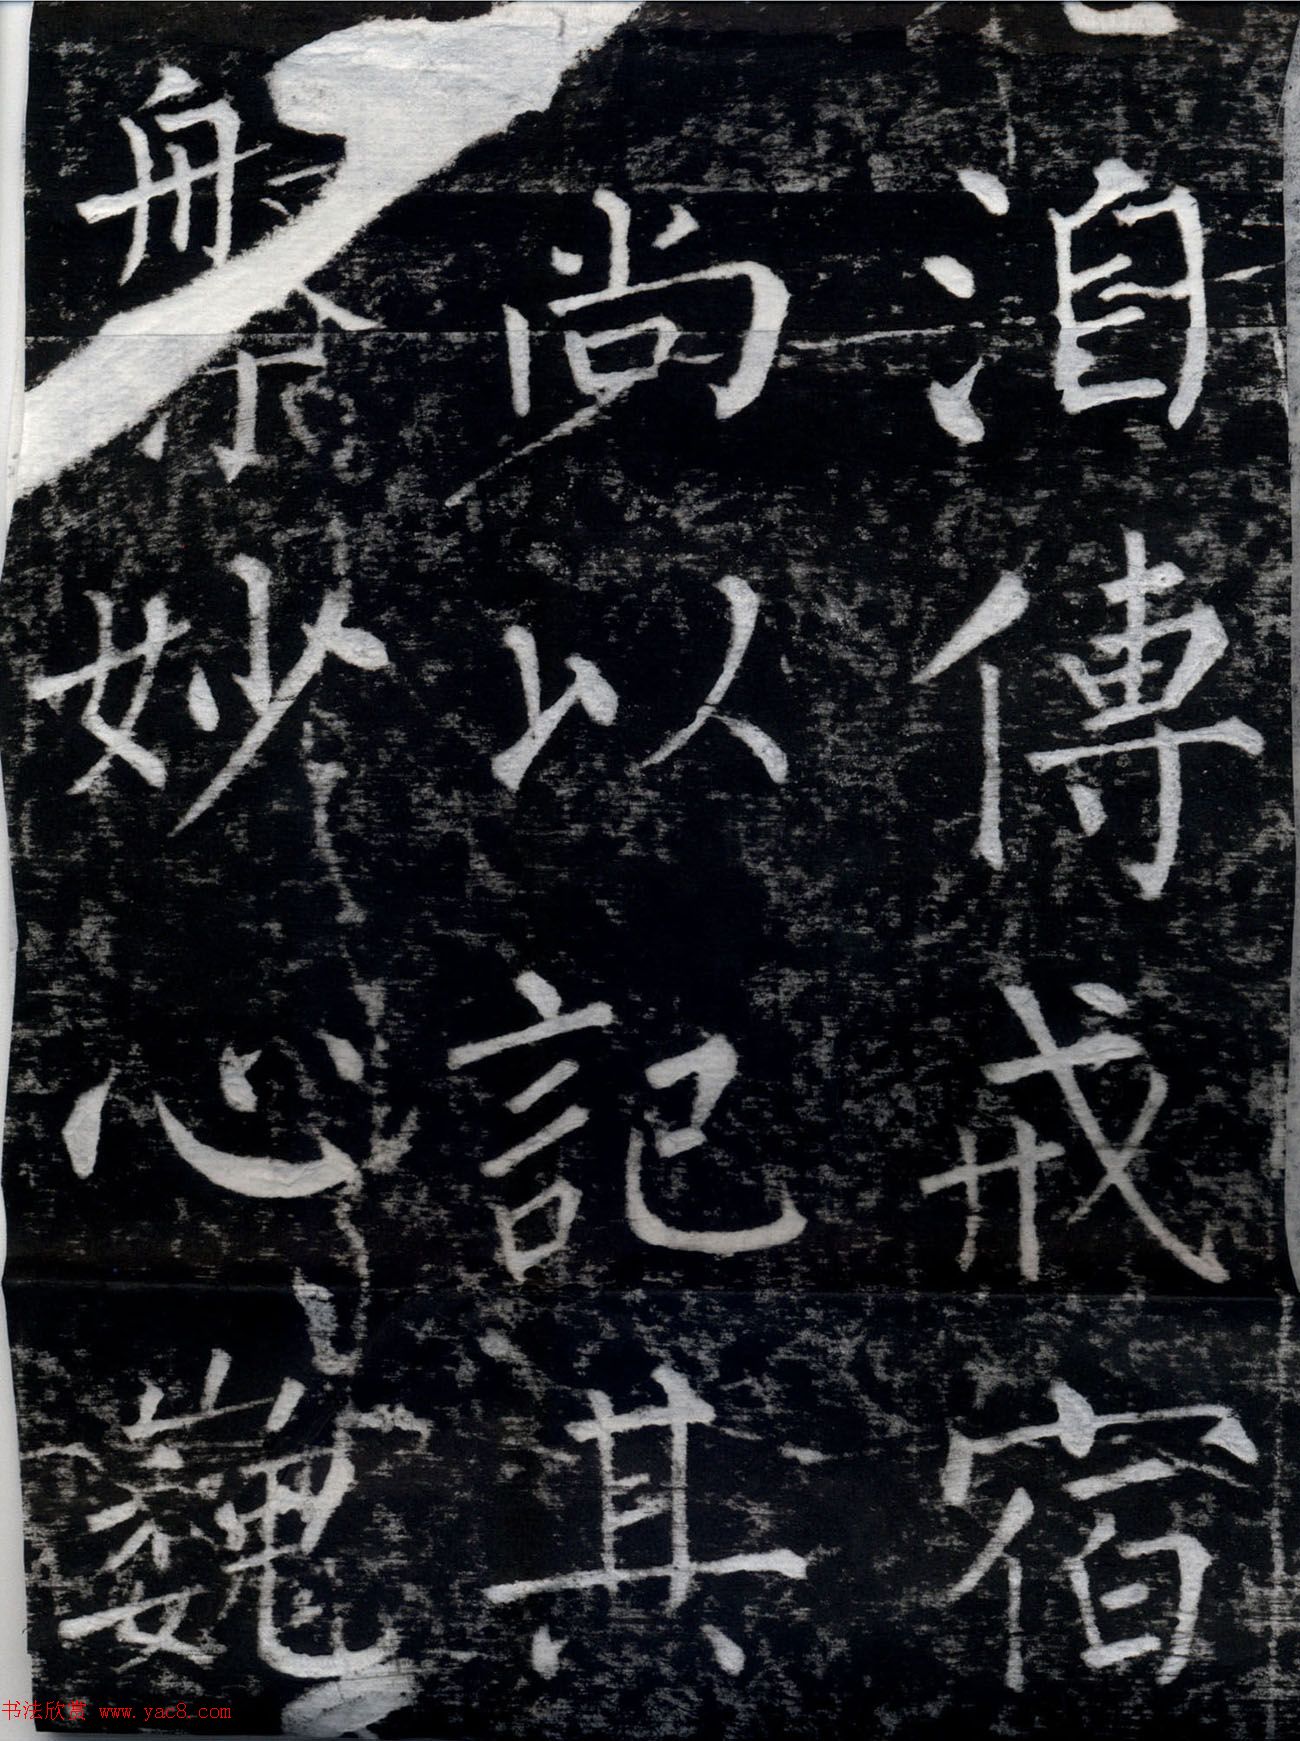 洎傳戒宿
尚以記其
妙心巍
书法欣赏 www.yac8.com